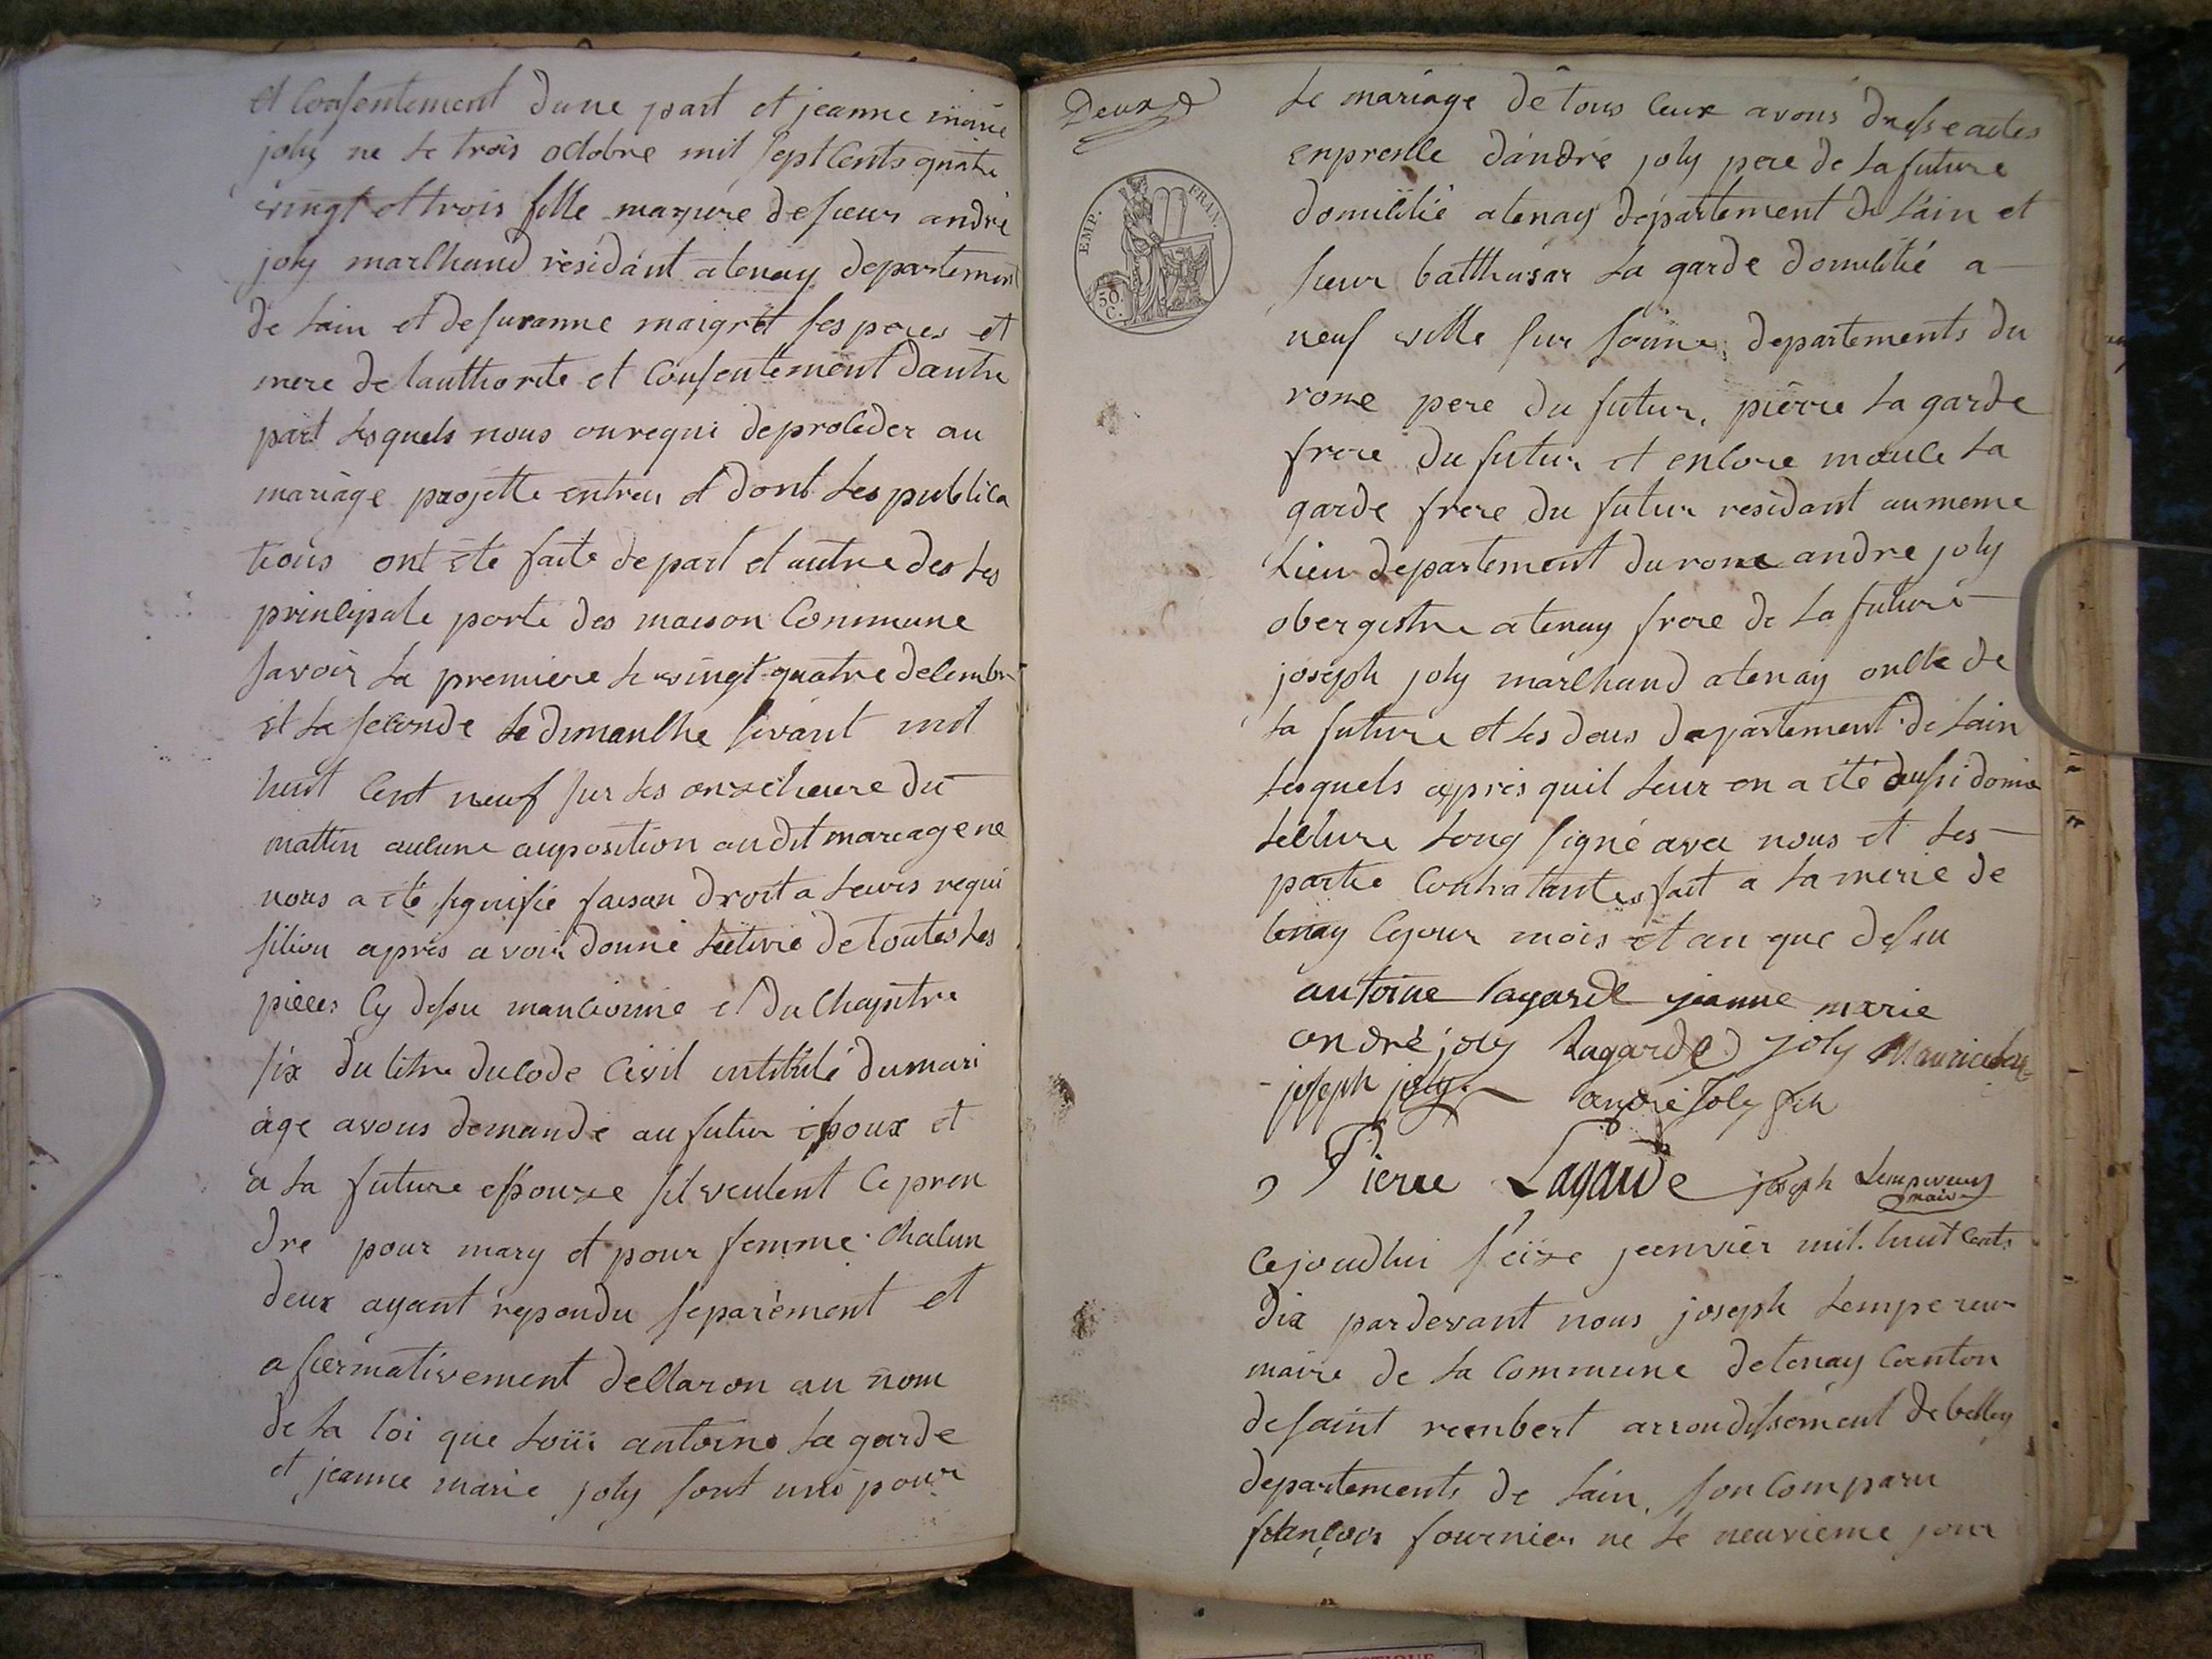 et Consentement dune part et jeanne marie
joly ne le trois octobre mil sept Cents quatre
vingt et trois fille majure de sieur andré
joly marchand résidant a tenay departement
de lain et de suzanne maigret ses peres et
mere de lauthorite et Consentement dautre
part lesquels nous on requi de proceder au
mariage projette entreu et dont les publica
tions ont été faite de part et autre des les
principale porte des maison Commune
savoir la premiere le vingt quatre decembre
et la seconde le dimanche sivant mil
huit Cent neuf sur les onze heure du
mattin aucune auposition audit mareage ne
nous a été signifié faisan droit a leurs requi
sition après avoir donné lecture de toutes les
pieces Cy desu manctionné et du Chapitre
six du titre du Code Civil intitulé du mari
age avons demandé au futur époux et
a la future epouze sil veulent Ce pren
dre pour mary et pour femme Chacun
deux ayant repondu separément et
afiermativement declaron au nom
de la loi que antoine la garde
et jeanne marie joly sont uni pour
Deux
EMP. FRAN.
50. C.
le mariage de tous Ceux avons dresse actes
en presence dandré joly pere de la future
domicilié a tenay département de lain et
sieur balthasar la garde domicilié a
neuf ville sur departements du
rone pere du futur, pierre la garde
frere du futur et encore la
garde frere du futur residant au meme
lieu departement du rone andre joly
obergistre a tenay frere de la future
joseph joly marchand a tenay oncle de
la future et les deus departement de lain
lesquels après quil leur en a été aussi donné
lecture long signé avec nous et les
partie Contratantes fait a la merie de
tenay Ce jour mois et an que desu
antoine lagarde jeanne marie
andré joly Lagarde joly
joseph joly andré Joly
Pierre Lagarde joseph Lempereur
maire
Cejoudhui seize jeanvier mil huit Cents
dix par devant nous joseph Lempereur
maire de la Commune de tenay Canton
de saint rembert arrondissement de belley
departements de lain son Comparu
françois fournier né le neuvieme jour